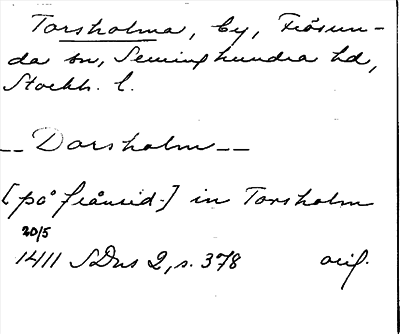 Torsholma, by, Frösun-
da sn, Seminghundra hd,
Stockh. l.
__Dorsholm__
[på frånsid.] in Torsholm
20/5
1411 SDns 2, s. 378 orig.